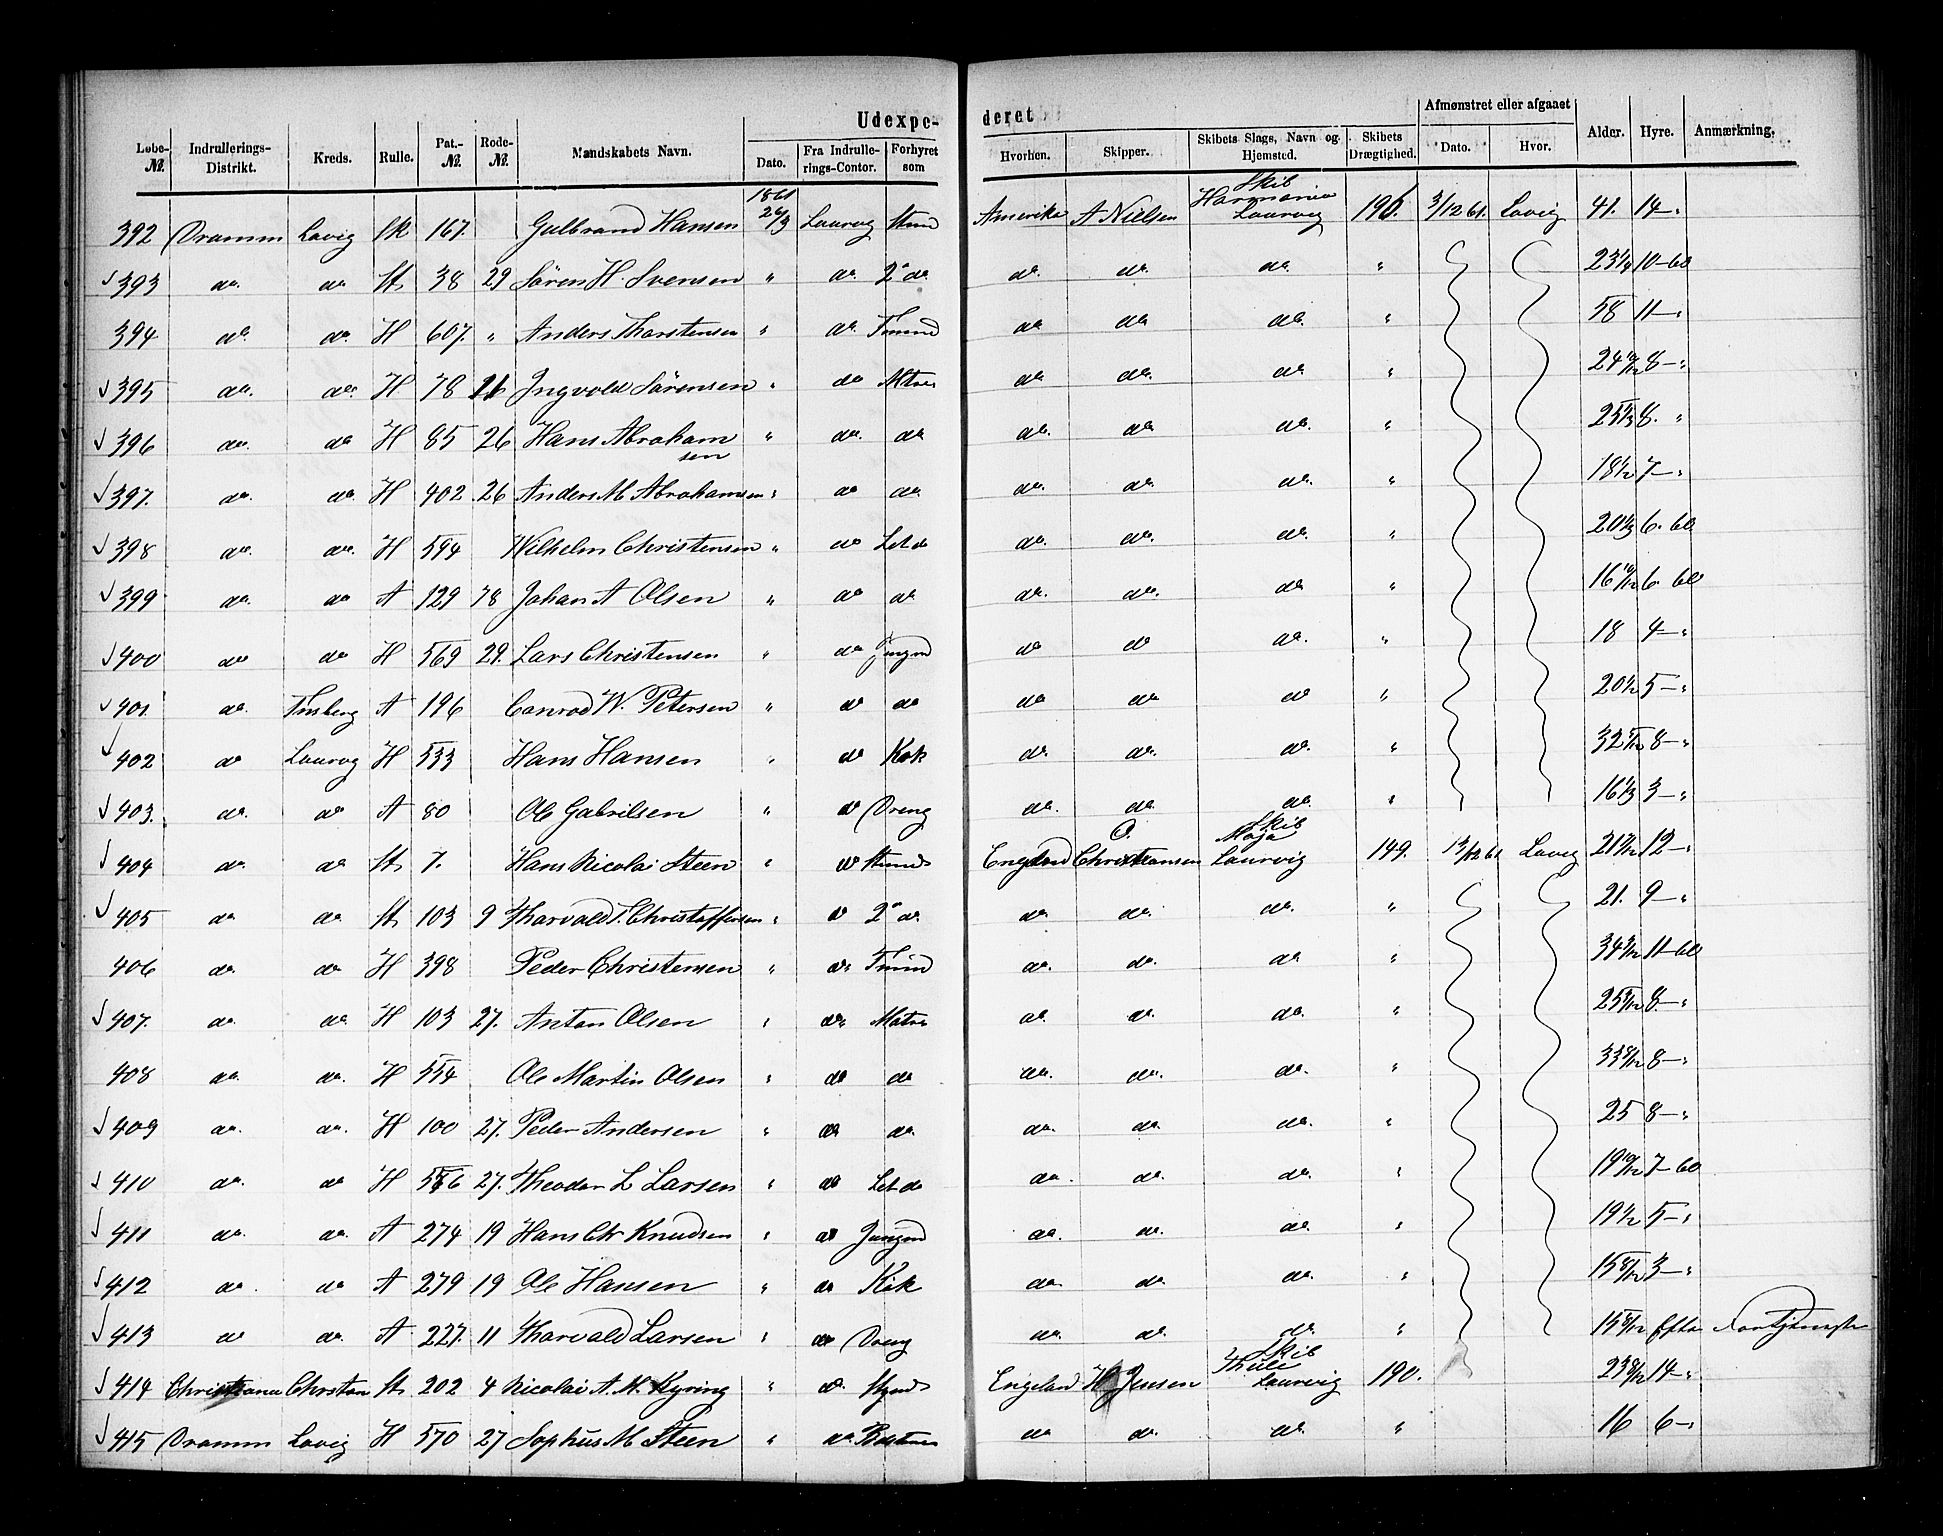 Udexpederet
Løbe-№ | Indrullerings-Distrikt. | Kreds. | Rulle. | Pat.-№ | Rode-№ | Mandskabets Navn. | Dato. | Fra Indrullerings-Contor. | Forhyret som | Hvorhen. | Skipper. | Skibets Slags, Navn og Hjemsted. | Skibets Drægtighed. | Afmønstret eller afgaaet Dato. | Hvor. | Alder. | Hyre. | Anmærkning.
392 Dramm Lavig Sk 167. Gulbrand Hansen 1861 26/3 Laurvg Stmd Amerika A Nielsen Skib Harmonia Laurvig 196. 3/12 61. Lavig 41. 14-"
393 do. do St 38 29 Sören H. Svensen " do 2d do do. do. do. " 23 1/4 10-60
394 do do. H 607. " Anders Thorstensen " do. Tmmd do do do. " 58 11-"
395 do. do. H 78 26 Ingvold Sörensen " do Mtrs do do. do " 24 10/12 8-"
396 do. do H 85 26 Hans Abrahamsen " do. do do. do do. " 25 8. "
397. do. do. H 402 26 Anders M Abrahamsen " do do. do. do. do. " 18 1/2 7-"
398 do. do. H 594 Wilhelm Christensen " do Let do do. do. do. " 20 1/3 6. 60
399 do. do A 129 78 Johan A Olsen " do do do. do. do " 16 10/12 6. 60
400 do do H 569 29. Lars Christensen " do Jungmd do d do. " 18 4-"
401. do. Tnsberg A 196 Conrad W. Petersen " do do do do do " 20 1/2 5-"
402 do Laurvg H 533 Hans Hansen " do Kok do. do. do. " 32 8-"
403. do. do A 80 Ole Gabrilsen " do Dreng do. do. do. " 16 1/3 3-"
404 do. do St 7. Hans Nicolai Steen " do Stmd Engeland O. Christiansen Skib Maja Laurvig 149. 14/12 61 Lavig 21 12-"
405 do do St 103 9 Thorvald T. Christoffersen " do 2d do. do do. do. " 21. 9-"
406 do. do H 398 Peder Christensen " do Tmmd do. do. do " 34 11-60
407. do. do. H 103 27. Anton Olsen " do Matrs do. do. do. " 25 8.-"
408 do. do. H 554 Ole Martin Olsen " do do do. do. do. " 33 8-"
409 do. do. H 100 27. Peder Andersen " do do. do. do. do. " 25 8-"
410 do. do H 556 27. Theodor L Larsen " do Let do do. do. do. " 19 10/12 7-60
411 do. do. A 274 19 Hans Chr Knudsen " do Jungmd do. do. do. " 19 1/2 5-"
412 do. do A 279 19 Ole Hansen " do Kok do. do do. " 15 3-"
413 do do. A 227. 11 Thorvald Larsen " do Dreng do. do. do. " 15 Efter Fortjeneste
414 Christiania Christian St 202 4 Nicolai A. M. Kyring " do. Stmd Engeland H Jensen Skib Thule Laurvig 190. 23 14-"
415 Dramm Lavig H 570 27 Sophus M Steen " do do do. do. " 16 6-"